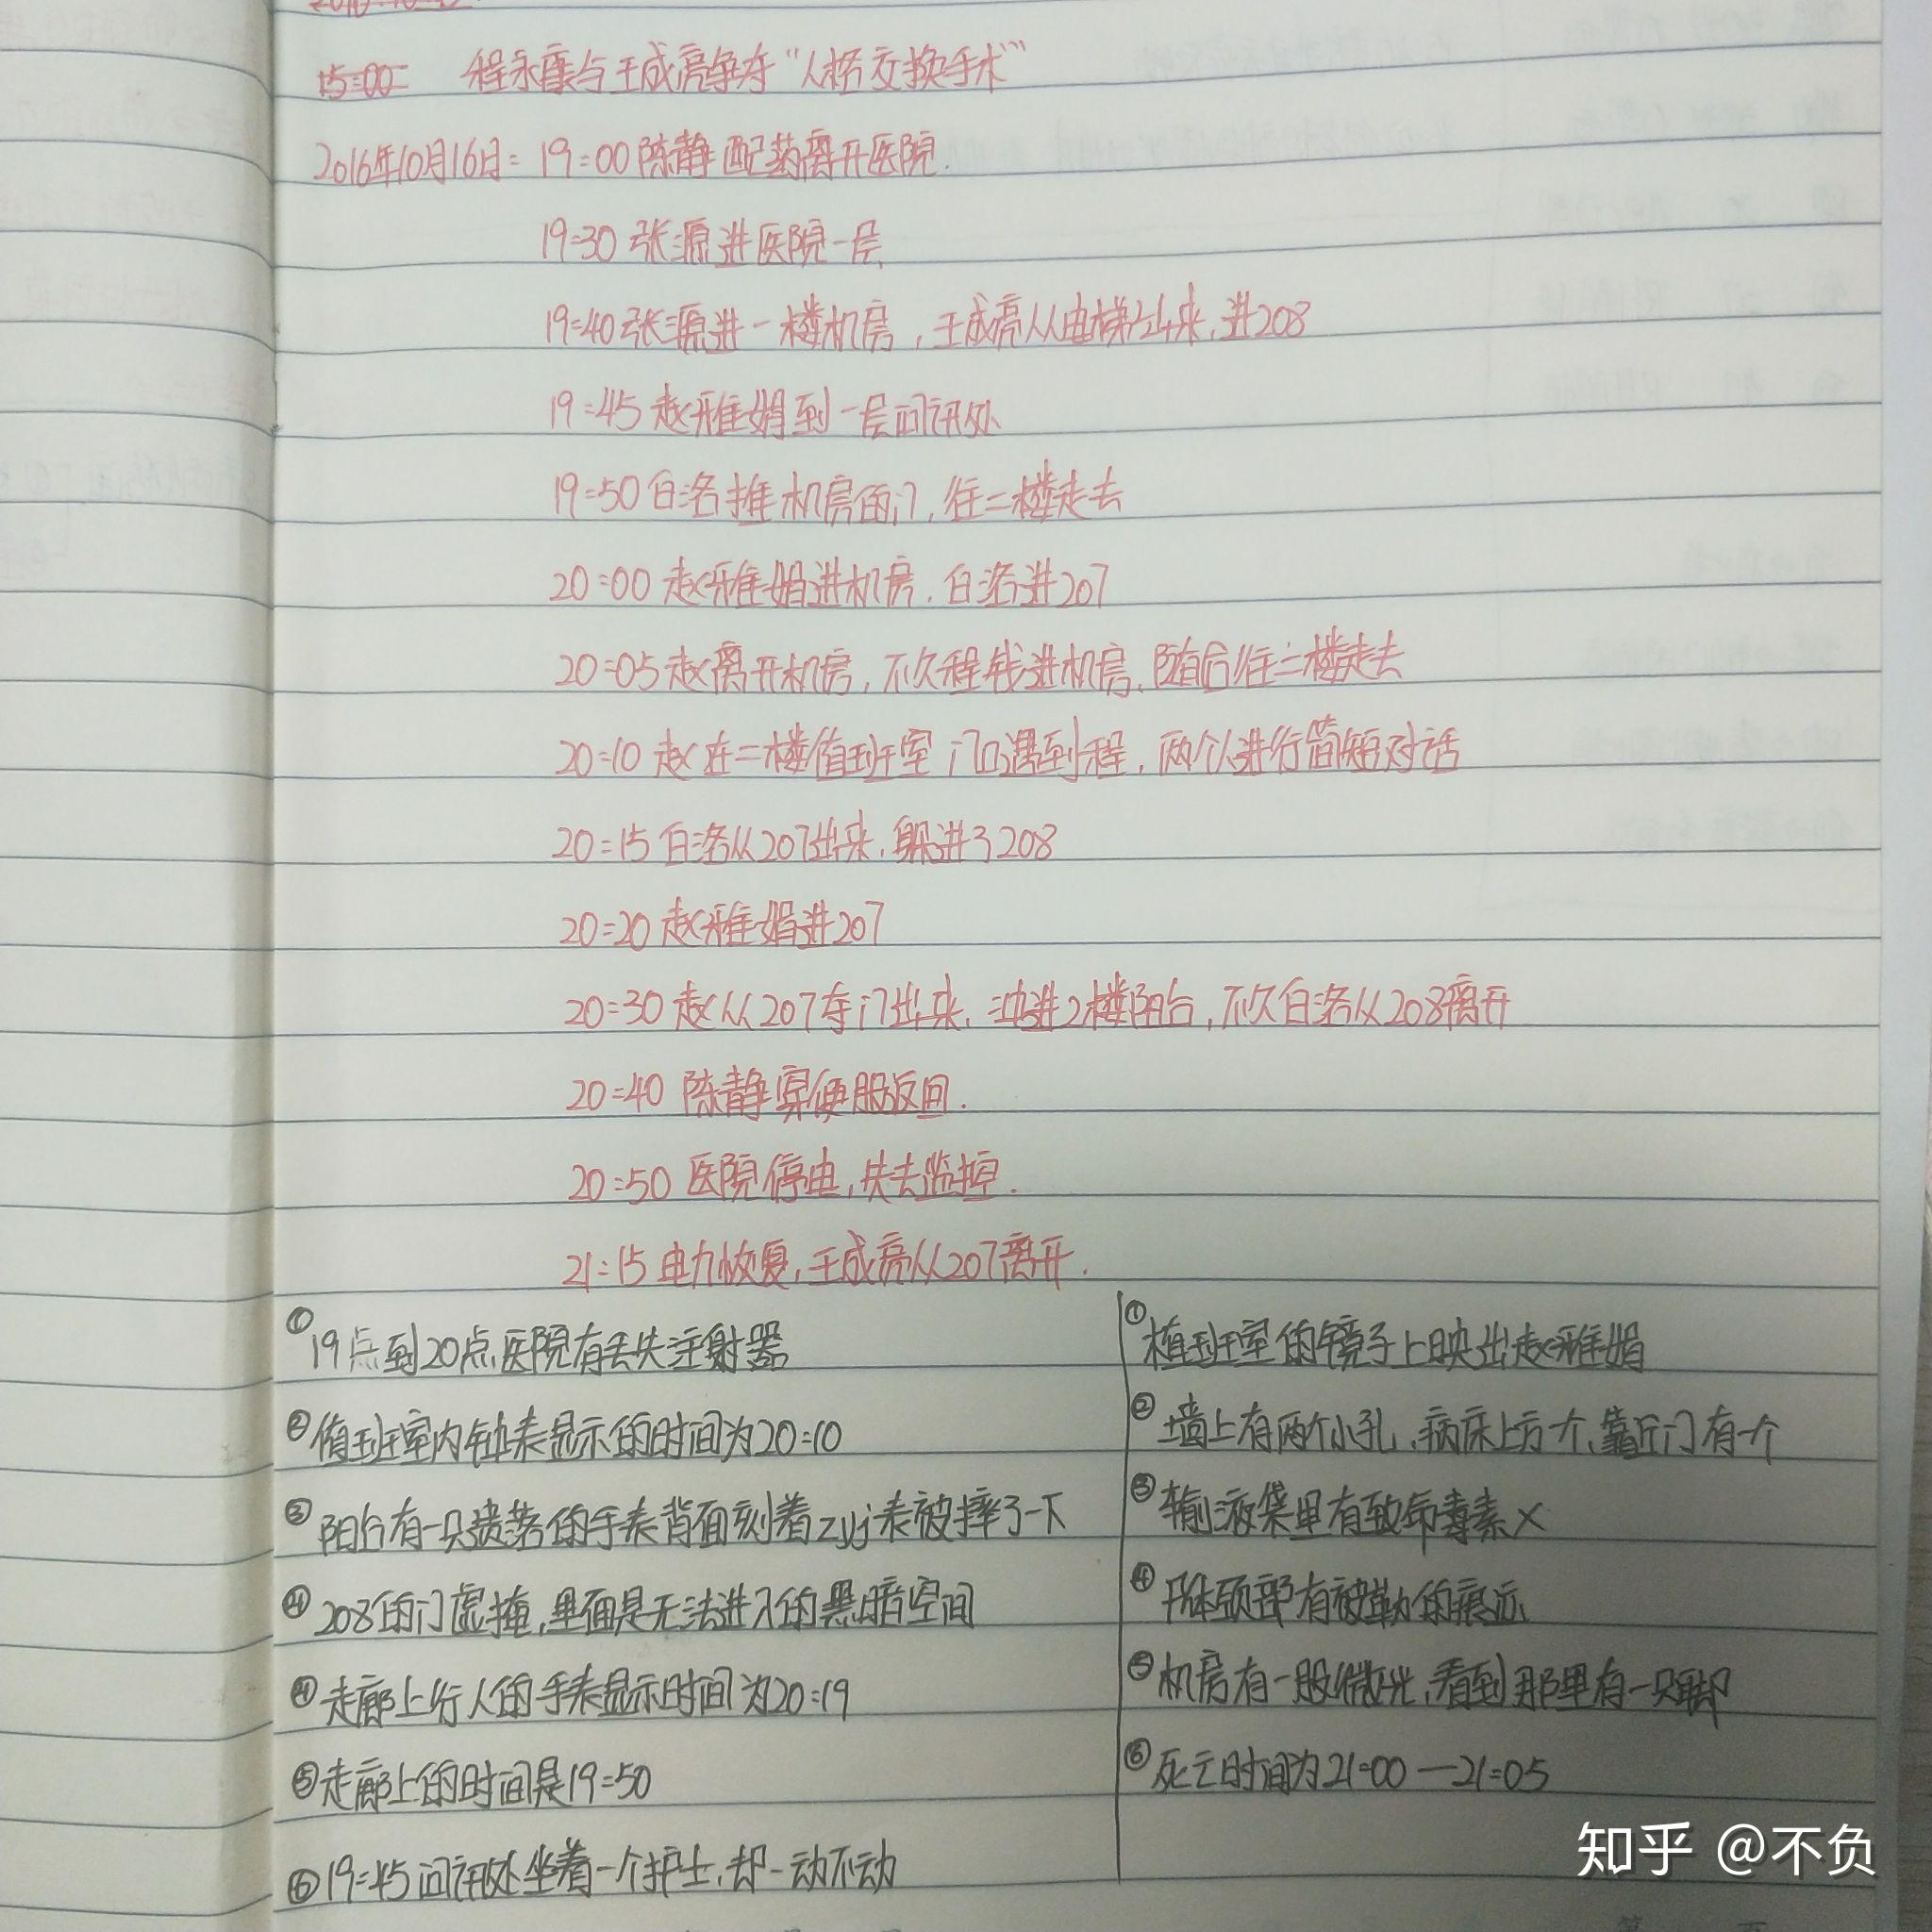 15:00 程永康与王成亮争夺“人格交换手术”
2016年10月16日: 19:00 陈静配药离开医院.
19:30 张源进医院一层
19:40 张源进一楼机房，王成亮从电梯出来,进208
19:45 赵雅娟到一层问讯处
19:50 白洛推机房的门,往二楼走去
20:00 赵雅娟进机房.白洛进207
20:05 赵离开机房,不久程钱进机房,随后往二楼走去
20:10 赵在二楼值班室门口遇到程,两个人进行简短对话
20:15 白洛从207出来,躲进了208
20:20 赵雅娟进207
20:30 赵从207夺门出来,冲进2楼阳台,不久白洛从208离开
20:40 陈静穿便服返回.
20:50 医院停电,失去监控.
21:15 电力恢复,王成亮从207离开.
①19点到20点医院有丢失注射器
②值班室内钟表显示的时间为20:10
③阳台有一只遗落的手表背面刻着zyj表被摔了一下
④208的门虚掩,里面是无法进入的黑暗空间
④走廊上行人的手表显示时间为20:19
⑤走廊上的时间是19:50
⑥19:45问讯处坐着一个护士,却一动不动
①值班室的镜子上映出赵雅娟
②墙上有两个小孔,病床上方一个,靠近门有一个
③输液袋里有致命毒素X
④尸体颈部有被勒的痕迹
⑤机房有一股微光,看到那里有一只脚
⑥死亡时间为21:00—21:05
知乎 @不负